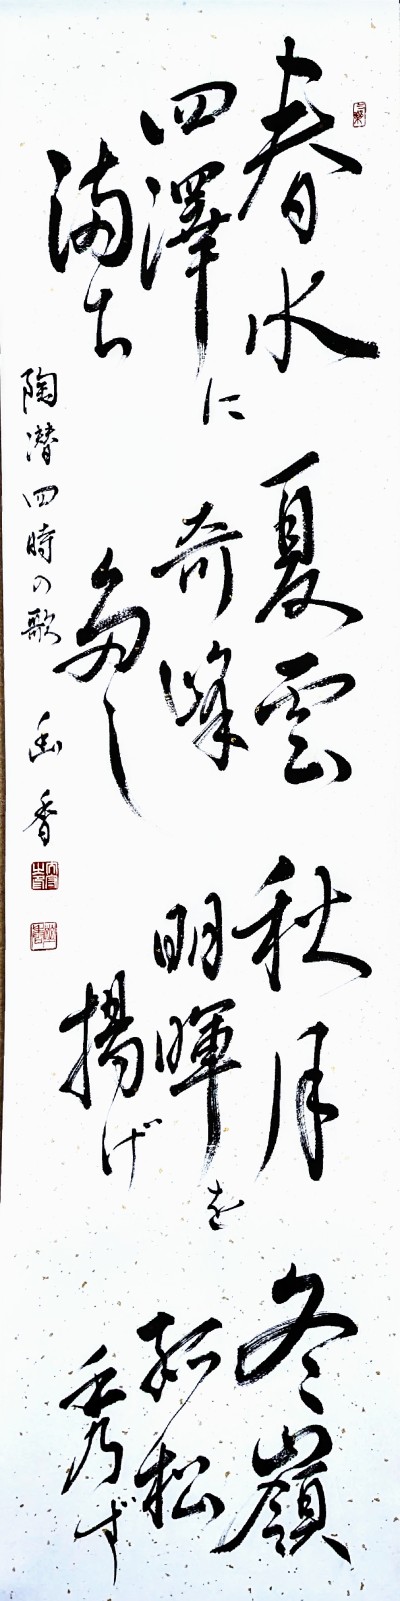 春水
四澤に
満ち
夏雲
奇峰
多し
秋月
明暉を
揚げ
冬嶺
孤松
秀ず
陶潜四時の歌 幽香